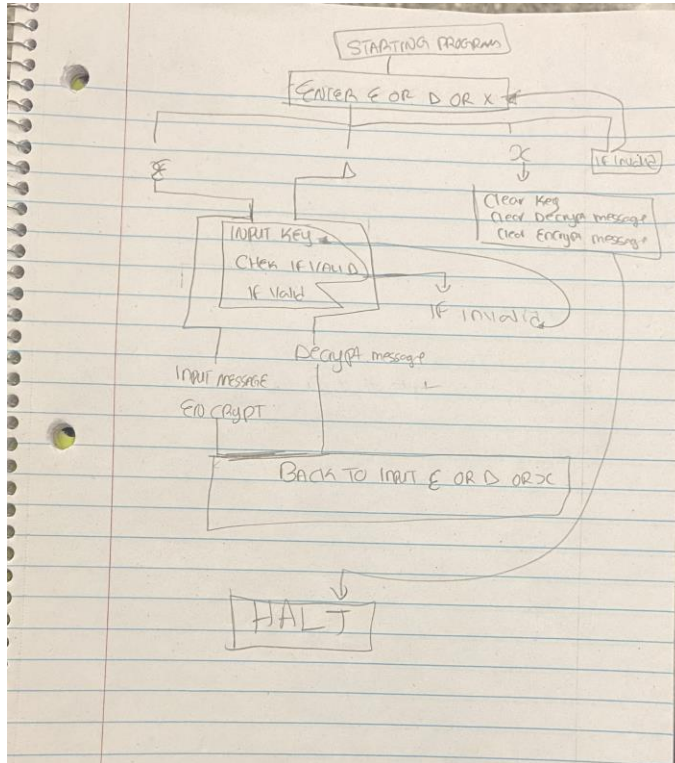 STARTING PROGRAM
ENTER E OR D OR X
E
D
X
IF Invalid
Clear Key
Clear Decrypt message
Clear Encrypt message
INPUT KEY
CHEK IF VALID
IF Valid
IF Invalid
Decrypt message
INPUT MESSAGE
ENCRYPT
BACK TO INPUT E OR D OR X
HALT